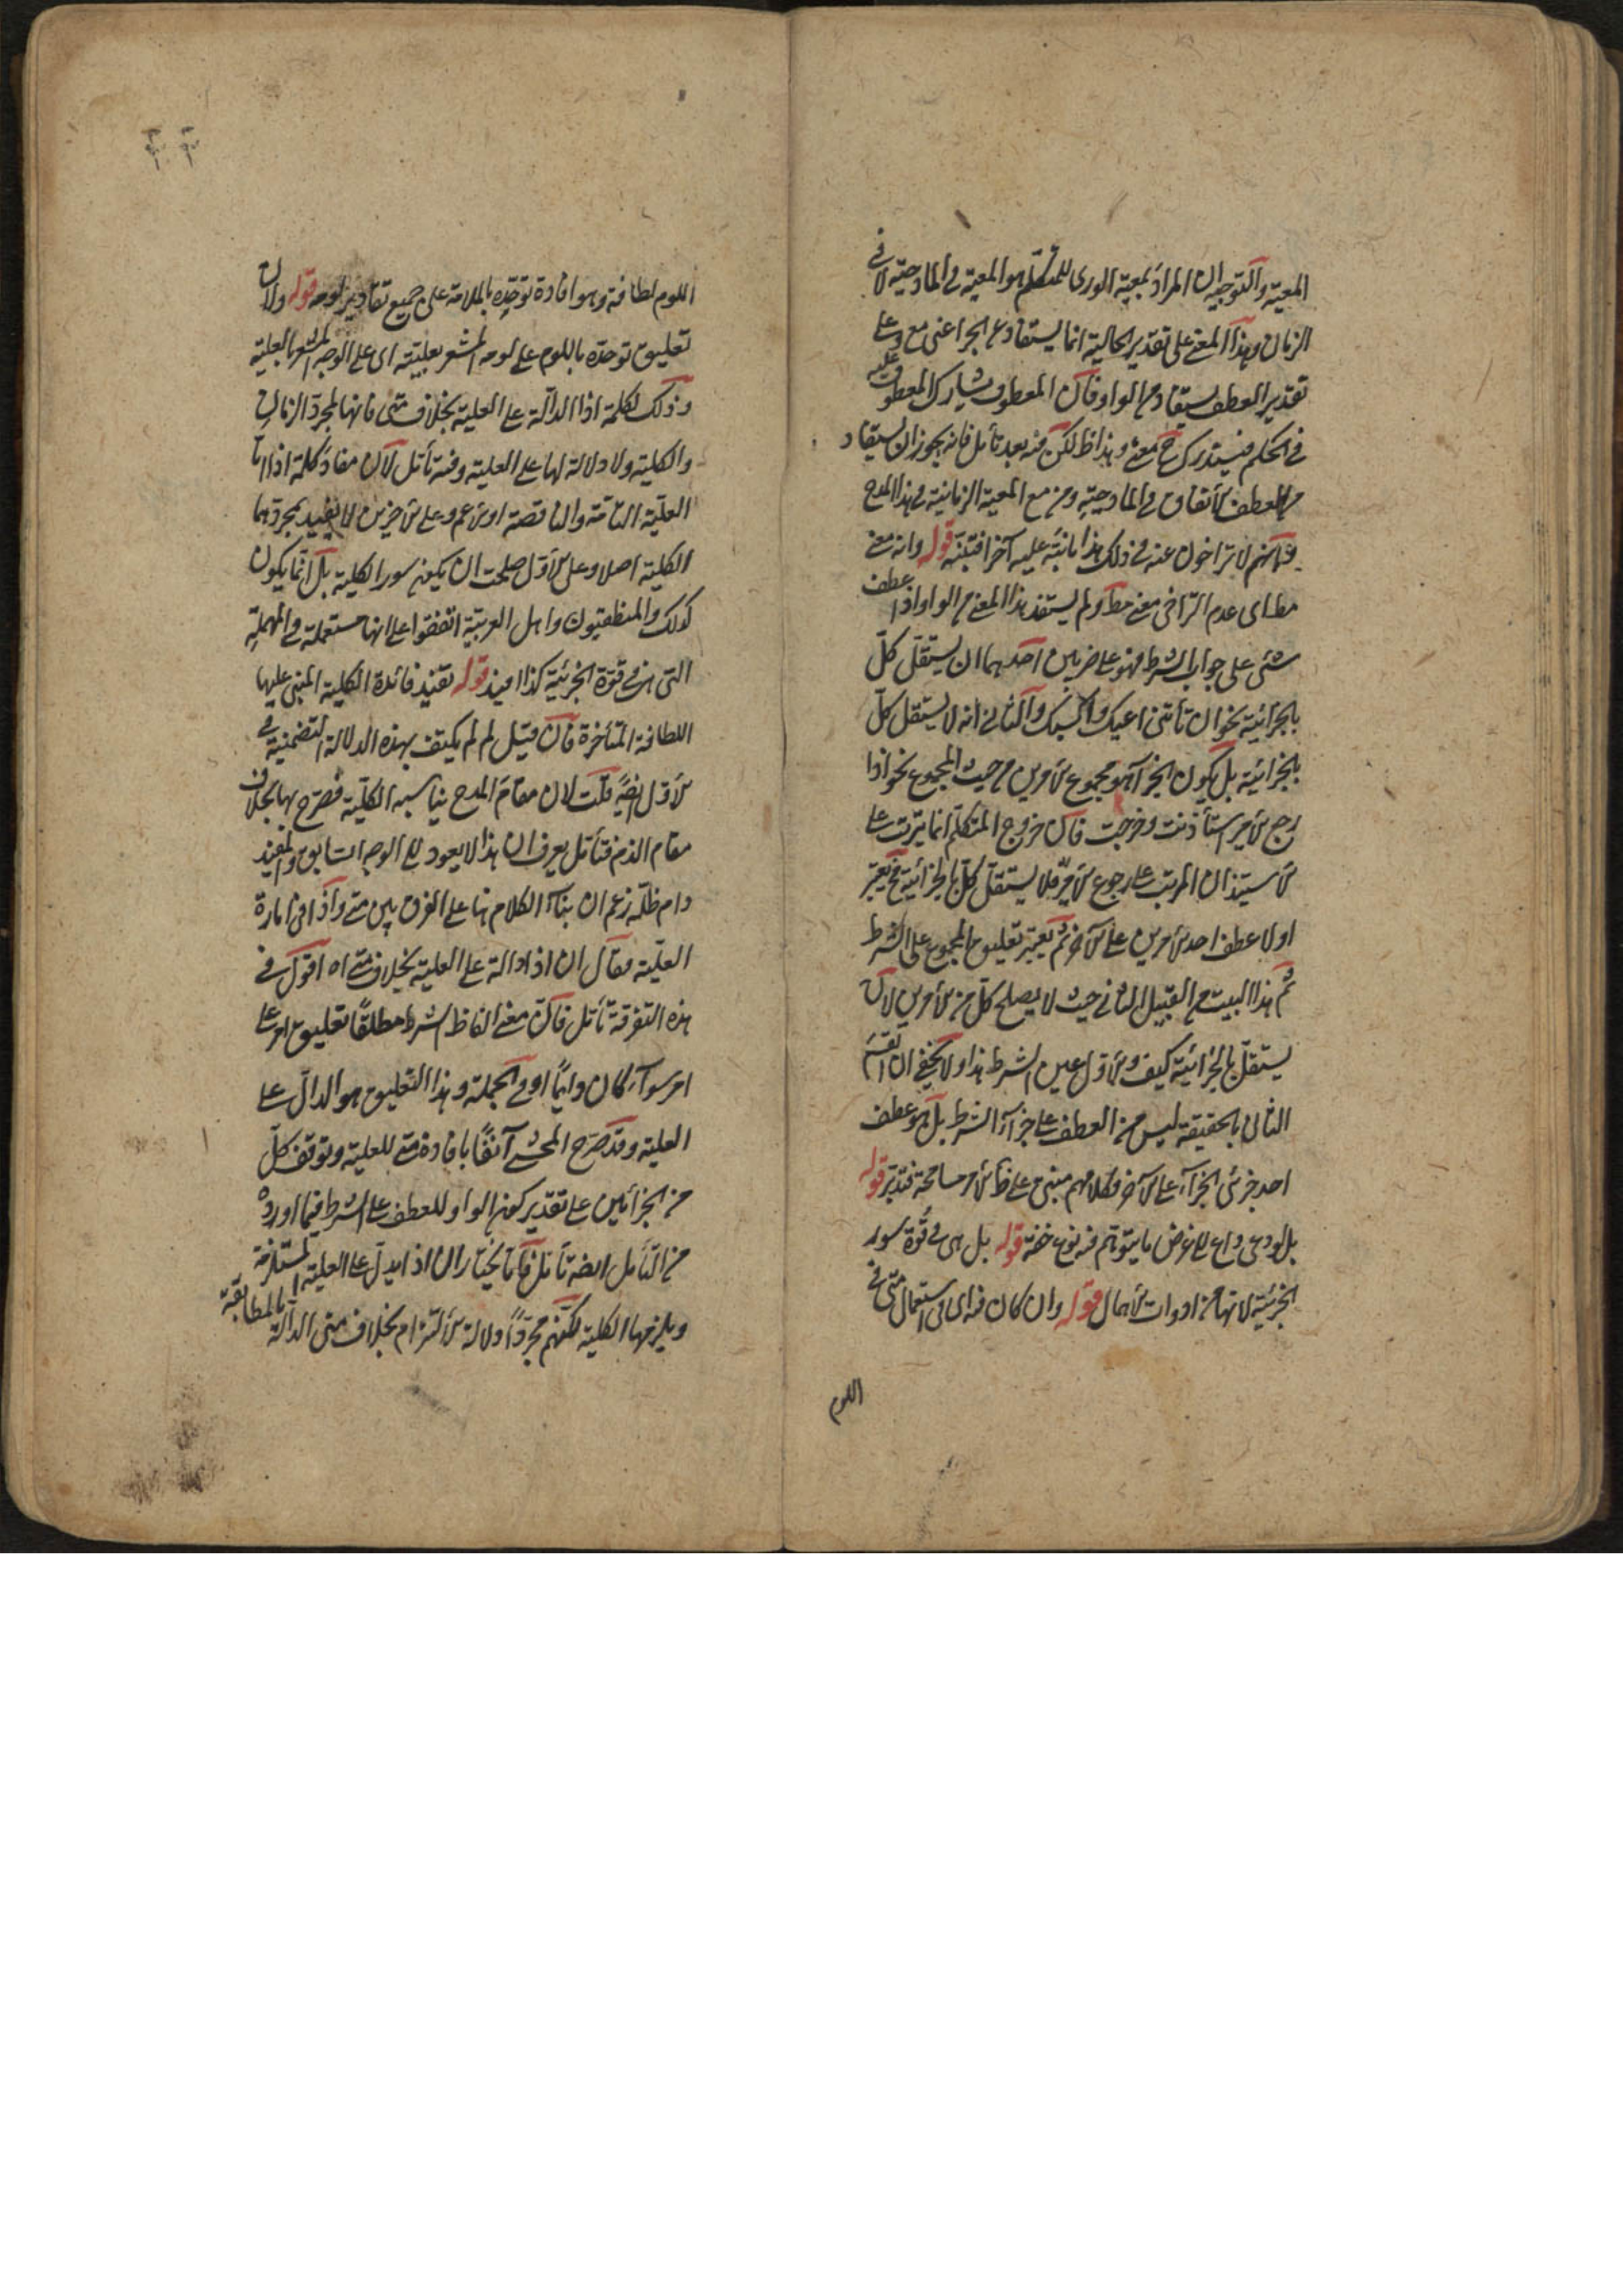 المعية والتوجيه ان المراد بمعية الورى للمتكلم هو المعية في المادحية لا في
الزمان وهذا المعنى على تقدير الحالية انما يستفاد من اعنى مع وعلى
تقدير العطف يستفاد من الواو فان المعطوف يشارك المعطوف عليه
في الحكم فيستدرك ح معه وهذا ظ لكن فيه بعد تأمل فانه يجوز ان يستفاد
من العطف الاتفاق في المادحية ومن مع المعية الزمانية في هذا المدح
لا تراخون عنه في ذلك هذا ما نبّه عليه آخرا فتنبّه قوله وانه معنى
مط اى عدم التراخى معنى مط ولم يستفد هذا المعنى من الواو اذا عطف
شئ على جواب الشرط فهو على ضربين احدهما ان يستقل كلّ
بالجزائية نحو ان تأتنى اعطيك واكسك والثانى انه لا يستقل كلّ
بالجزائية بل يكون الجزآ هو مجموع الامرين من حيث المجموع نحو اذا
رجع الامير استأذنت وخرجت فان خروج المتكلم انما يترتب على
الاستيذان المرتب على رجوع الامير فلا يستقل كلّ بالجزائية فح يعتبر
اولا عطف احد الامرين على الآخر ثم يعتبر تعليق المجموع على الشرط
ثم هذا البيت من القبيل الثانى حيث لا يصلح كلّ من الامرين لان
يستقلّ بالجزائية كيف والاول عين الشرط هذا ولا يخفى ان القسم
الثانى بالحقيقة ليس من العطف على جزآء الشرط بل هو عطف
احد جزئى الجزآء على الآخر فكلامهم مبنى على ظ الامر مسامحة فتدبّر قوله
بل لودعى داع الى غرض ما يتوهم فيه نوع خفة قوله بل هى فى قوة سور
الجزئية لانها من ادوات الاهمال قوله وان كان فيه اى فى استعمال متى فى
اللوم
اللوم لطافة وهو افادة توحّده بالملامة على جميع تقادير لومه قوله ولان
تعليق توحدّه باللوم على لومه المشعر بعليته اى على الوجه المشعر بالعلية
وذلك لكلمة اذا الدالة على العلية بخلاف متى فانها لمجرد الزمان
والكلية ولا دلالة لها على العلية وفيه تأمل لان مفاد كلمة اذا اما
العلّية التامّة والناقصة او الاعم وعلى الاخيرين لا يفيد بمجردهما
الكلية اصلا وعلى الاول صلحت ان يكون سور الكلية بل انما يكون
كذلك والمنطقيون واهل العربية اتفقوا على انها مستعملة فى المهملة
التى هى فى قوّة الجزئية كذا افيد قوله تفيد فائدة الكلية المبنى عليها
اللطافة المتأخرة فان قيل لم لم يكتف بهذه الدلالة التضمنية فى
الاول ايضً قلت لان مقام المدح يناسبه الكلية فصرح بها بخلاف
مقام الذم فتأمل يعرف ان هذا لا يعود الى الوجه السابق والمفيد
دام ظلّه زعم ان بناء الكلام هنا على الفرق بين متى واذا فى امارة
العلّية فقال ان اذا دالة على العلية بخلاف متى اه اقول فى
هذه التفرقة تأمل فان معنى الفاظ الشرط مطلقًا تعليق امر على
امر سوآء كان دايمًا او فى الجملة وهذا التعليق هو الدال على
العلية وقد صرح المحشى آنفًا بافادة متى للعلية وتوقف كلّ
من الجزائين على تقدير كون الواو للعطف على الشرط فيما اورده
من التأمل ايضه تأمل فانا نختار ان اذا يدل على العلية المستلزمة
ويلزمها الكلية لكنهم مجردًا دلالة الالتزام بخلاف متى الدالة بالمطابقة